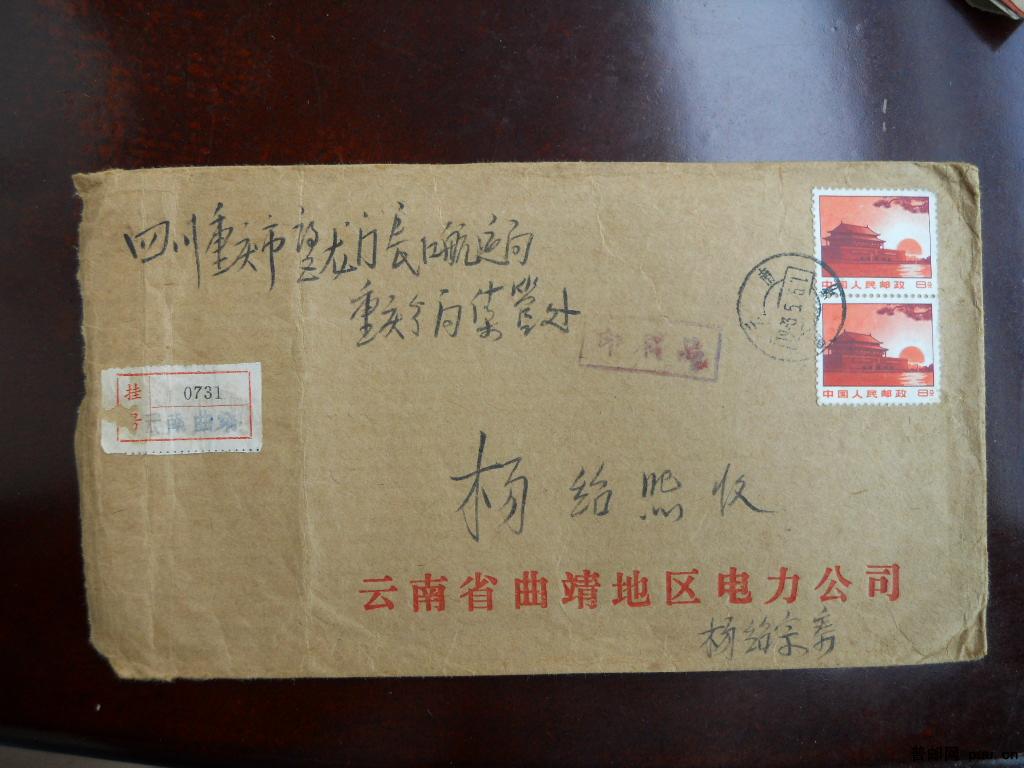 四川重庆市望龙门长江航运局
重庆分局荣管处
中国人民邮政 8分
中国人民邮政 8分
挂号 0731
云南曲靖
杨绍熙收
云南省曲靖地区电力公司
杨绍宗寄
普邮网 puyu.cn